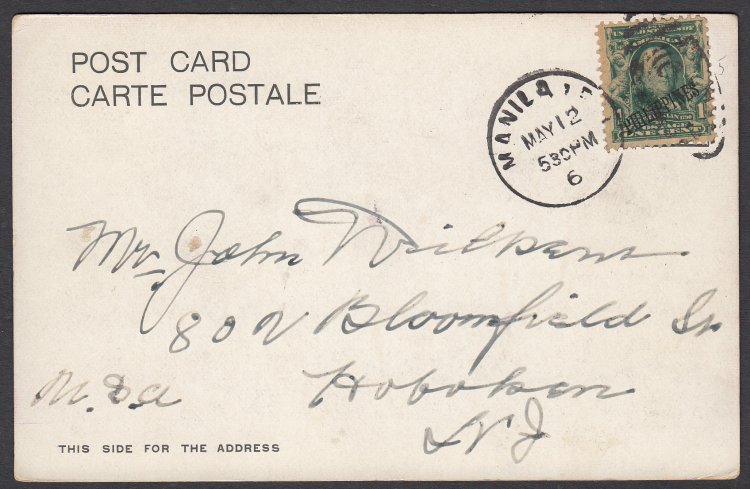 POST CARD
CARTE POSTALE
MANILA, P.I.
MAY 12
530PM
6
PHILIPPINES
1
Mr. John Wilkens
802 Bloomfield St
Hoboken
N J
U.S.A
THIS SIDE FOR THE ADDRESS